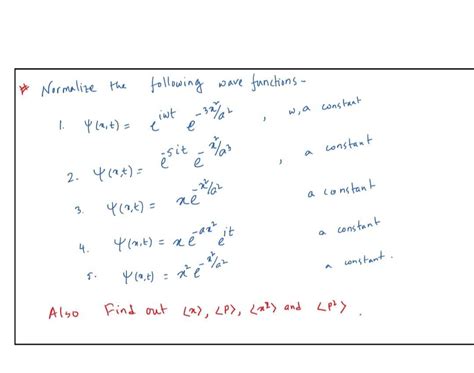 * Normalize the following wave functions -
1. Ψ(x,t) = e^{iωt} e^{-3x²/a²} , ω,a constant
2. Ψ(x,t) = e^{-5it} e^{-x²/a³} , a constant
3. Ψ(x,t) = x e^{-x²/a²} a constant
4. Ψ(x,t) = x e^{-ax²} e^{it} a constant
5. Ψ(x,t) = x² e^{-x²/a²} a constant.
Also Find out ⟨x⟩, ⟨p⟩, ⟨x²⟩ and ⟨p²⟩ .